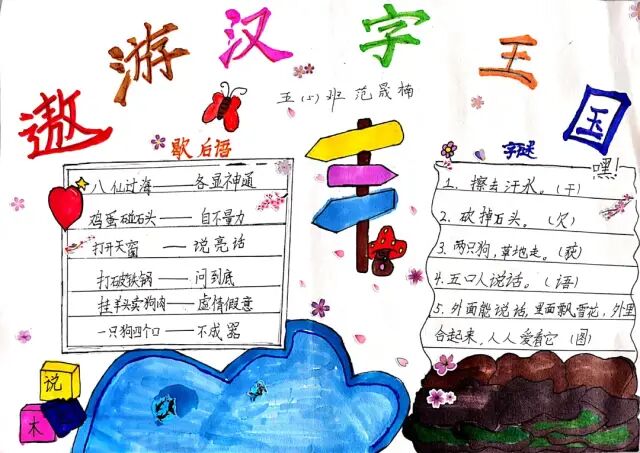 遨游汉字王国
五(5)班 范晟楠
歇后语
八仙过海——各显神通
鸡蛋碰石头——自不量力
打开天窗——说亮话
打破铁锅——问到底
挂羊头卖狗肉——虚情假意
一只狗四个口——不成器
字谜
嘿!
1. 擦去汗水。(干)
2. 砍掉石头。(欠)
3. 两只狗,草地走。(荻)
4. 五口人说话。(语)
5. 外面能说话,里面飘雪花,外里
合起来,人人爱看它(图)
说
木